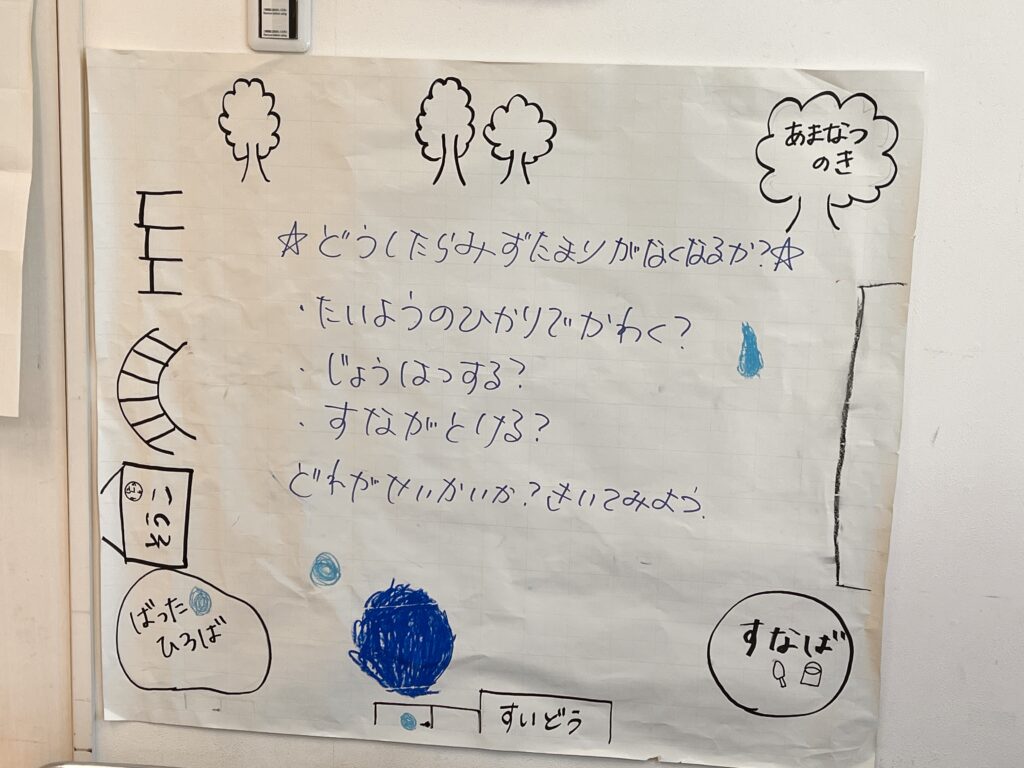 あまなつ
のき
☆どうしたらみずたまりがなくなるか?☆
・たいようのひかりでかわく?
・じょうはっする?
・すながとける?
どれがせいかいか?きいてみよう.
ばった
ひろば
すなば
すいどう